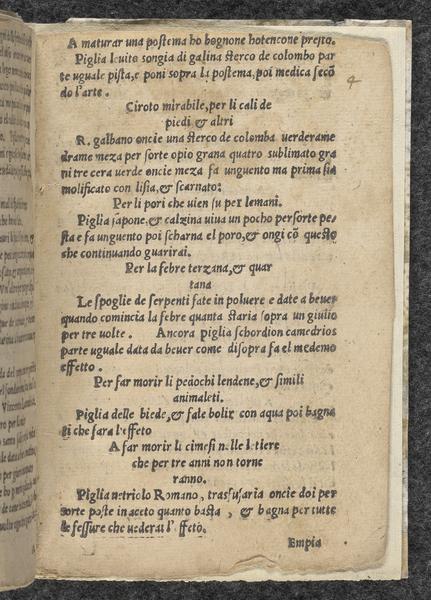 A maturar una postema ho bognone hotencone presto.
Piglia leuito songia di galina sterco de colombo par
te uguale pista, e poni sopra la postema, poi medica secõ
do l'arte.
4
Ciroto mirabile, per li cali de
piedi & altri
R. galbano oncie una sterco de colomba uerderame
drame meza per sorte opio grana quatro sublimato gra
ni tre cera uerde oncie meza fa unguento ma prima sia
molificato con lisia, & scarnato:
Per li pori che uien su per lemani.
Piglia sapone, & calzina uiua un pocho per sorte pe-
sta e fa unguento poi scharna el poro, & ongi cõ questo
che continuando guarirai.
Per la febre terzana, & quar
tana
Le spoglie de serpenti fate in poluere e date a beuer
quando comincia la febre quanta staria sopra un giulio
per tre uolte. Ancora piglia schordion camedrios
parte uguale data da beuer come disopra fa el medemo
effetto.
Per far morir li pedochi lendene, & simili
animaleti.
Piglia delle biede, & fale bolir con aqua poi bagna
ti che fara l'effeto
A far morir li cimesi nelle letiere
che per tre anni non torne
ranno.
Piglia uetriolo Romano, oncie doi per
sorte poste in aceto quanto basta, & bagna per tutte
le fessure che uederai l'effeto.
Empia